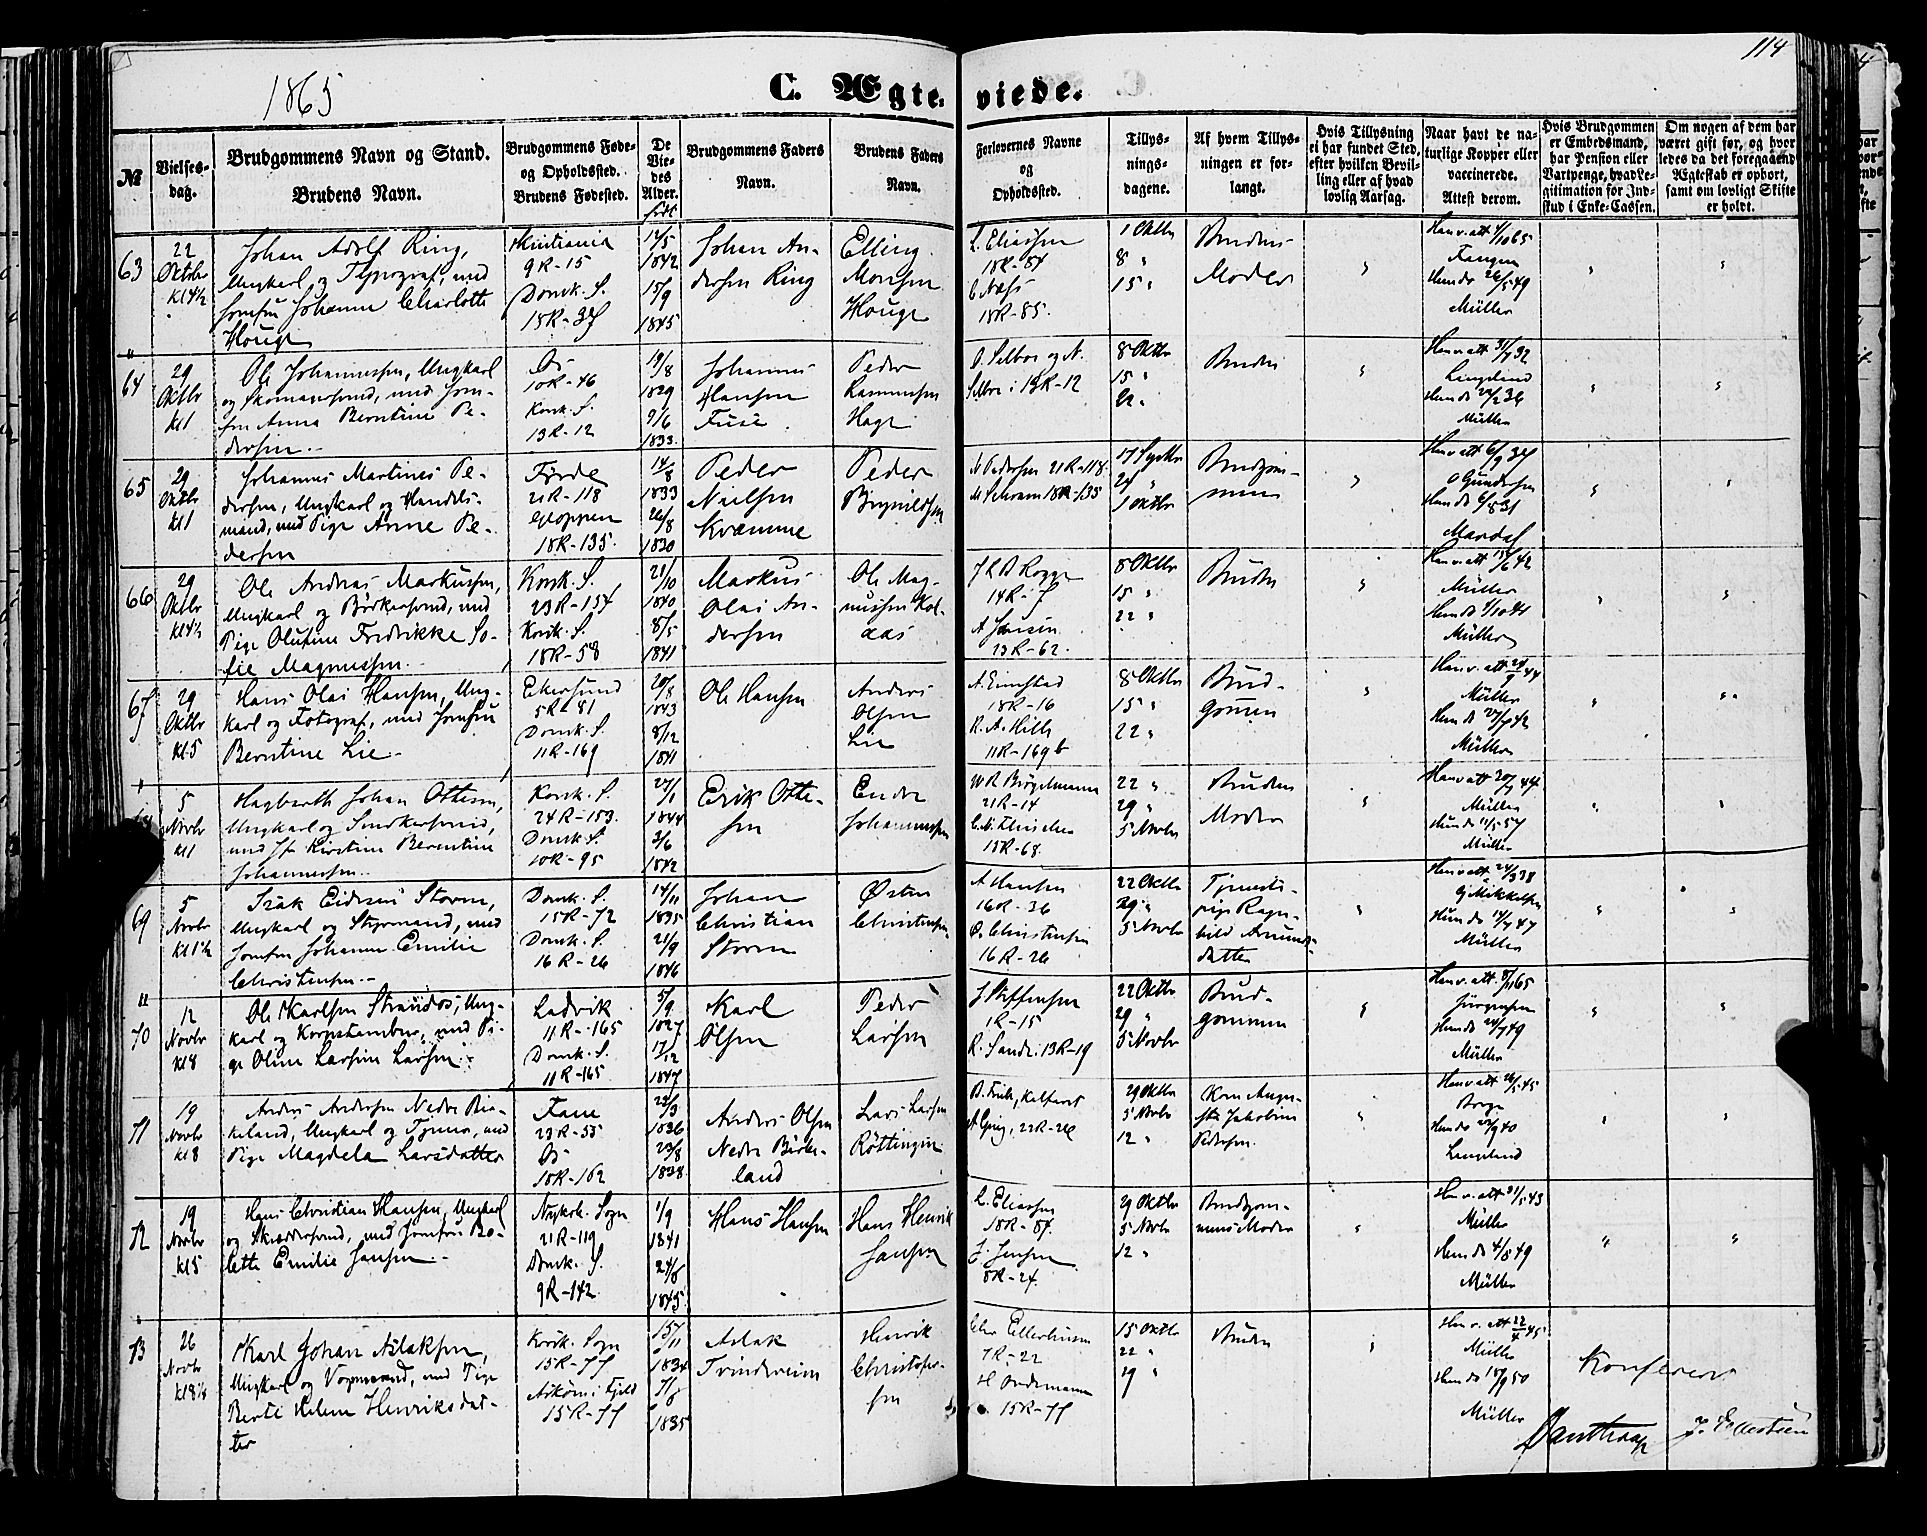 1865
C. Ægte-
viede.
114
№
Vielses-
dag.
Brudgommens Navn og Stand.
Brudens Navn.
Brudgommens Føde-
og Opholdssted.
Brudens Fødested.
De
Vie-
des
Alder.
født
Brudgommens Faders
Navn.
Brudens Faders
Navn.
Forlovernes Navne
og
Opholdssted.
Tillys-
nings-
dagene.
Af hvem Tillys-
ningen er for-
langt.
Hvis Tillysning
ei har fundet Sted,
efter hvilken Bevil-
ling eller af hvad
lovlig Aarsag.
Naar havt de na-
turlige Kopper eller
vaccinerede.
Attest derom.
Hvis Brudgommen
er Embedsmand,
har Pension eller
Vartpenge, hvad Le-
gitimation for Ind-
skud i Enke-Cassen.
Om nogen af dem har
været gift før, og hvor
ledes da det foregaaende
Ægteskab er ophørt,
samt om lovligt Skifte
er holdt.
63
22
Oktbr
Kl 4½
Johan Adolf Ring,
Ungkarl og Typograf, med
Jomfru Johanne Charlotte
Houge
Kristiania
9R-15
Domk. S.
15R-37
12/5
1842
15/9
1845
Johan An-
dersen Ring
Elling
Monsen
Houge
C. Eliassen
18R-84
C Næss
18R-85.
1 Oktbr
8 "
15 "
Brudens
Moder
Han v. att 4/10 65
Fangen
Hun do 26/5 49
Müller
64
29
Oktbr
Kl 1
Ole Johannessen, Ungkarl
og Skomagersvend, med Jom-
fru Anna Berntine Pe-
dersen
Os
10R-46
Korsk. S.
13R-12
19/8
1829
9/6
1833.
Johannes
Hansen
Fuse
Peder
Rasmussen
Hage
O. Selboe og N.
Selboe i 13R-12
8 Oktbr
15 "
22 "
Bruden
Han v. att 31/7 32
Lingeland
Hun do 36
Müller
65
29
Oktbr
Kl 1
Johannes Martines Pe-
dersen, Ungkarl og Handels-
mand, med Pige Anne Pe-
dersen
Førde
21R-118
Gloppen
18R-135.
14/8
1833
26/8
1830
Peder
Nielsen
Kvamme
Peder
Brynildsen
N Pedersen 21R-118.
M Schram 18R-135
17 Septbr
24 "
1 Oktbr
Brudgom-
men
Han v att 6/9 34
O Gundersen
Hun do 6/8 31
Mandal
66
29
Oktbr
Kl 4½
Ole Andreas Markussen,
Ungkarl og Bødkersvend, med
Pige Olufine Fredrikke So-
fie Magnussen
Korsk. S.
23R-154
Korsk. S.
18R-58
21/10
1840
8/5
1841
Markus
Olai An-
dersen
Ole Mag-
nussen Kol-
aas
14R-7
A Jansen
23R-62.
8 Oktbr
15 "
22 "
Bruden
Müller
Müller
67
29
Oktbr
Kl 5
Hans Olai Hansen, Ung-
karl og Fotograf, med Jomfru
Berntine Lie
Ekersund
5R-81
Domk. S.
11R-169
20/8
1843
8/12
1841
Ole Hansen
Anders
Olsen
Lie
18R-16
11R-169 b
8 Oktbr
15 "
22 "
Brud-
gommen
Müller
Müller
68
5
Novbr
Kl 1
Hagbarth Johan Ottesen,
Ungkarl og Snedkersvend,
med Jfr Kirstine Berentine
Johannessen
Korsk. S.
24R-153.
Domk. S.
10R-95
27/1
1844
3/6
1842
Erik Otte-
sen
Endre
Johannessen
W R Brögelmann
21R-14
C. N. Fleischer
15R-68.
22 "
29 "
5 Novbr
Brudens
Moder
Müller
Müller
69
5
Novbr
Kl 1½
Isak Eidsvis Storm,
Ungkarl og Styrmand, med
Jomfru Johanne Emilie
Christensen
Domk. S.
15R-72
Domk. S.
16R-26
14/11
1835
21/9
1846
Johan
Christian
Storm
Østen
Christensen
A Hansen
16R-36
O. Christensen
16R-26
22 Oktbr
29 "
5 Novbr
Tjeneste-
pige Ragn-
hild Amunds-
datter
Han v. att 24/9 38
G Mikkelsen
Müller
70
12
Novbr
Kl 8
Ole Karlsen Strandos, Ung-
karl og Korpstambur, med Pi-
ge Oline Larsine Larsen
Ladvik
11R-165
Domk. S.
11R-165
5/9
1827
17/12
1847
Karl
Olsen
Peder
Larsen
J Steffensen
1R-15
R. Sande. 13R-19
22 Oktbr
29 "
5 Novbr
Brud-
gommen
Jürgensen
Müller
71
19
Novbr
Kl 8
Anders Andersen Nedre Bir-
keland, Ungkarl og Tjener, med
Pige Magdela Larsdatter
Fane
23R-55
Os
18R-162
22/3
1836
23/8
1838.
Anders Olsen
Nedre Birke-
land
Lars Larsen
Röttingen
29 Oktbr
5 Novbr
12 "
Kone Augu-
sta Jakobine
Pedersen.
Lingeland
72
19
Novbr
Kl 5
Hans Christian Hansen, Ungkarl
og Skræddersvend, med Jomfru Bo-
lette Emilie Jansen
Nykirk. Sogn
21R-119
Domk. S.
9R-142
1/9
1841
24/6
1845.
Hans Hansen
Hans Henrik
Jansen
C. Eliassen
18R-84
J. Jensen
8R-24.
29 Oktbr
5 Novbr
12 "
Brudgom-
mens Moder
Müller
Müller
73
26
Novbr
Kl 8½
Karl Johan Aslaksen,
Ungkarl og Vognmand, med Pige
Berte Helene Henriksdat-
ter
Korsk. Sogn
15R-77
Askøen i Fjeld
15R-77
15/11
1834
1835
Aslak
Tvindereim
Henrik
Christofer-
sen
Chr Ellerhusen
7R-22
15R-77
15 Oktbr
22 "
29 "
Bruden
Müller
Müller
Konfereres
Daustrup
J. Ellertsen